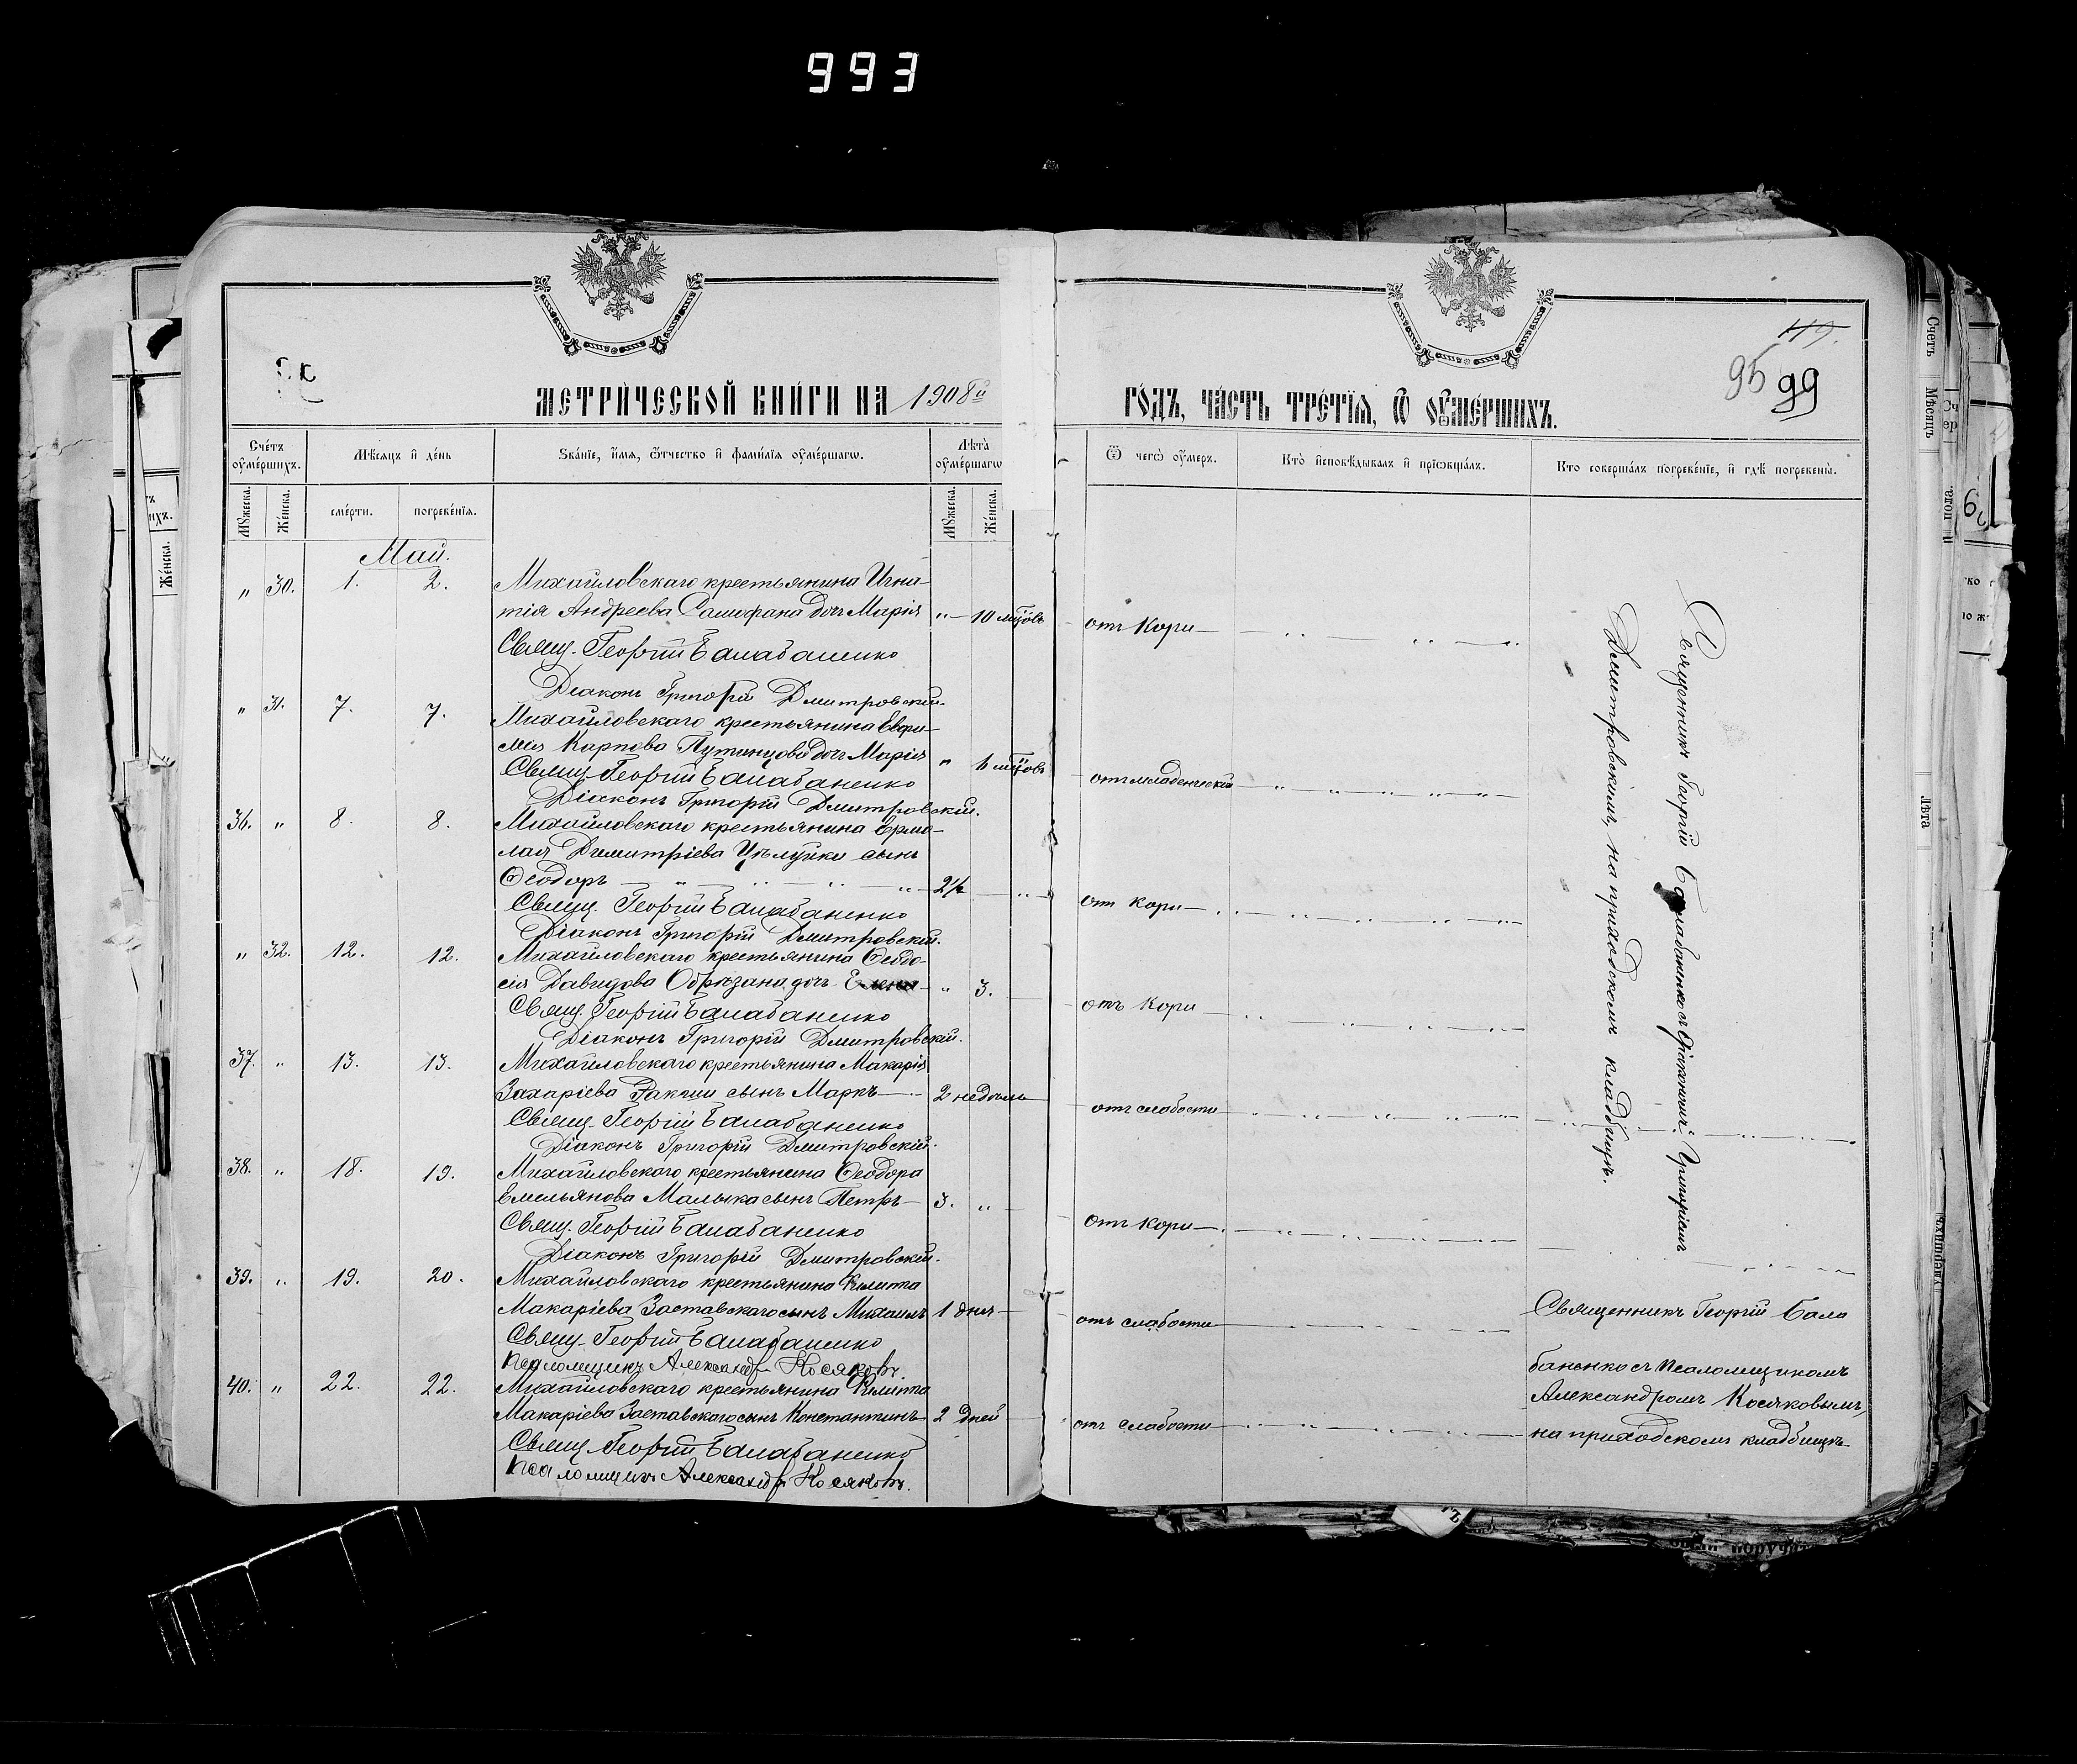 993
119.
95 99
МЕТРИЧЕСКОЙ КНИГИ НА 1908й ГОДЪ, ЧАСТЬ ТРЕТІЯ, Ѿ ОУМЕРШИХЪ.
Счетъ оумершихъ.
Мѣсяцъ и день
Званіе, имя, ѿчество и фамилія оумершагѡ.
Лѣта оумершагѡ
Ѿ чегѡ оумеръ.
Кто исповѣдывалъ и пріѡбщалъ.
Кто совершалъ погребеніе, и гдѣ погребены.
Мужеска.
Женска.
смерти.
погребенія.
Мужеска.
Женска.
Май.
" 30. 1. 2. Михайловскаго крестьянина Игна-
тія Андреева Самофала дочь Марія " 10 мѣсяцовъ отъ Кори
Свящ. Георгій Балабаненко
Діаконъ Григорій Дмитровскій.
" 31. 7. 7. Михайловскаго крестьянина Евфи-
мія Карпова Путинцова дочь Марія " мѣсяцовъ отъ младенческой
Свящ. Георгій Балабаненко
Діаконъ Григорій Дмитровскій.
36. " 8. 8. Михайловскаго крестьянина Ермо-
лая Димитріева Цѣлуйко сынъ
Ѳеодоръ 2½ " отъ Кори
Свящ. Георгій Балабаненко
Діаконъ Григорій Дмитровскій.
" 32. 12. 12. Михайловскаго крестьянина Ѳеодо-
сія Давидова Обрѣзана дочь Елена " 3. отъ Кори
Свящ. Георгій Балабаненко
Діаконъ Григорій Дмитровскій.
37. " 13. 13. Михайловскаго крестьянина Макарія
Захаріева Ракши сынъ Маркъ 2 недѣль отъ слабости
Свящ. Георгій Балабаненко
Діаконъ Григорій Дмитровскій.
38. " 18. 19. Михайловскаго крестьянина Ѳеодора
Емельянова Малыка сынъ Петръ 3. " отъ Кори
Свящ. Георгій Балабаненко
Діаконъ Григорій Дмитровскій.
39. " 19. 20. Михайловскаго крестьянина Климта
Макаріева Заставскаго сынъ Михаилъ 1 дня отъ слабости
Свящ. Георгій Балабаненко
Псаломщикъ Александръ Косяковъ.
40. " 22. 22. Михайловскаго крестьянина Климта
Макаріева Заставскаго сынъ Константинъ 2 дней отъ слабости
Свящ. Георгій Балабаненко
Псаломщикъ Александръ Косяковъ.
Священникъ Георгій Балабаненко съ Діакономъ Григоріемъ
Дмитровскимъ, на приходскомъ кладбищѣ.
Священникъ Георгій Бала
баненко съ Псаломщикомъ
Александромъ Косяковымъ,
на приходскомъ кладбищѣ
Счетъ
Мѣсяцъ
Лѣта
Женска.